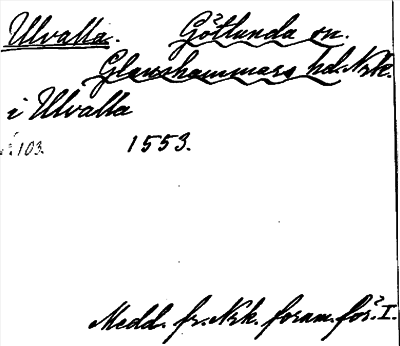 Ulvalla. Götlunda sn.
Glanshammars hd. Nrk.
i Ulvalla
103. 1553.
Medd. fr. Nrk. fornm. för. I.